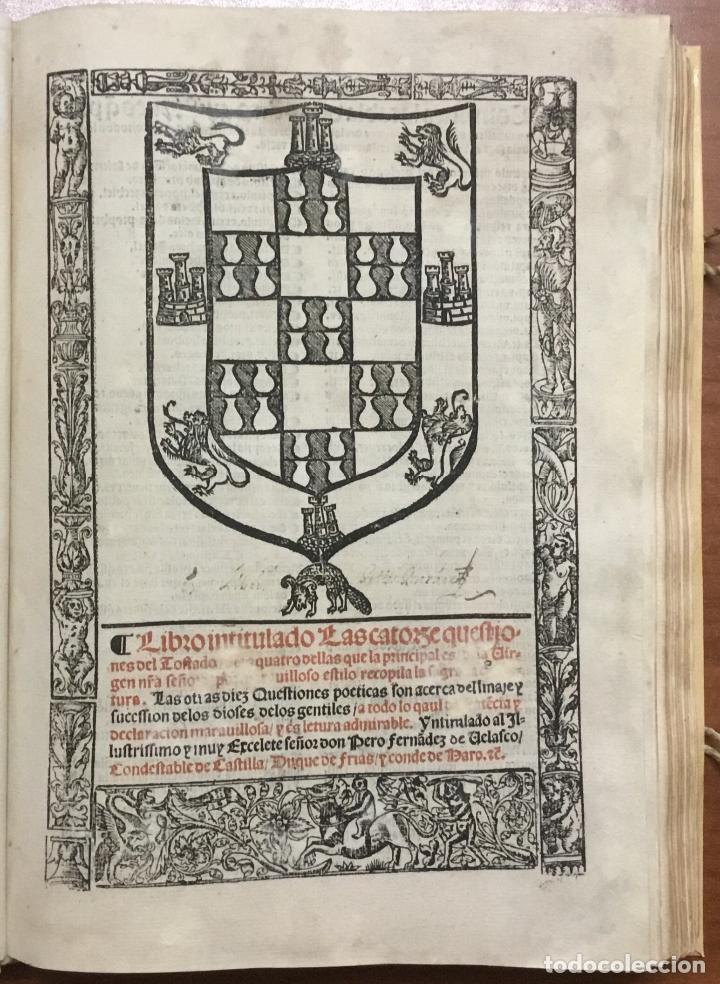 ¶ Libro intitulado Las catorze questio-
nes del Tostado quatro dellas que la principal es Uir-
gen nr̃a seño uilloso estilo recopila la sagr
tura. Las otras diez Questiones poeticas son acerca del linaje y
sucession delos dioses delos gentiles / a todo lo qual da
declaracion marauillosa / y es letura admirable. Yntitulado al Il-
lustrissimo y muy Excelẽte señor don Pero Fernãdez de Uelasco /
Condestable de Castilla / Duque de Frias / y conde de Haro. ⁊c̃.
todocoleccion.net